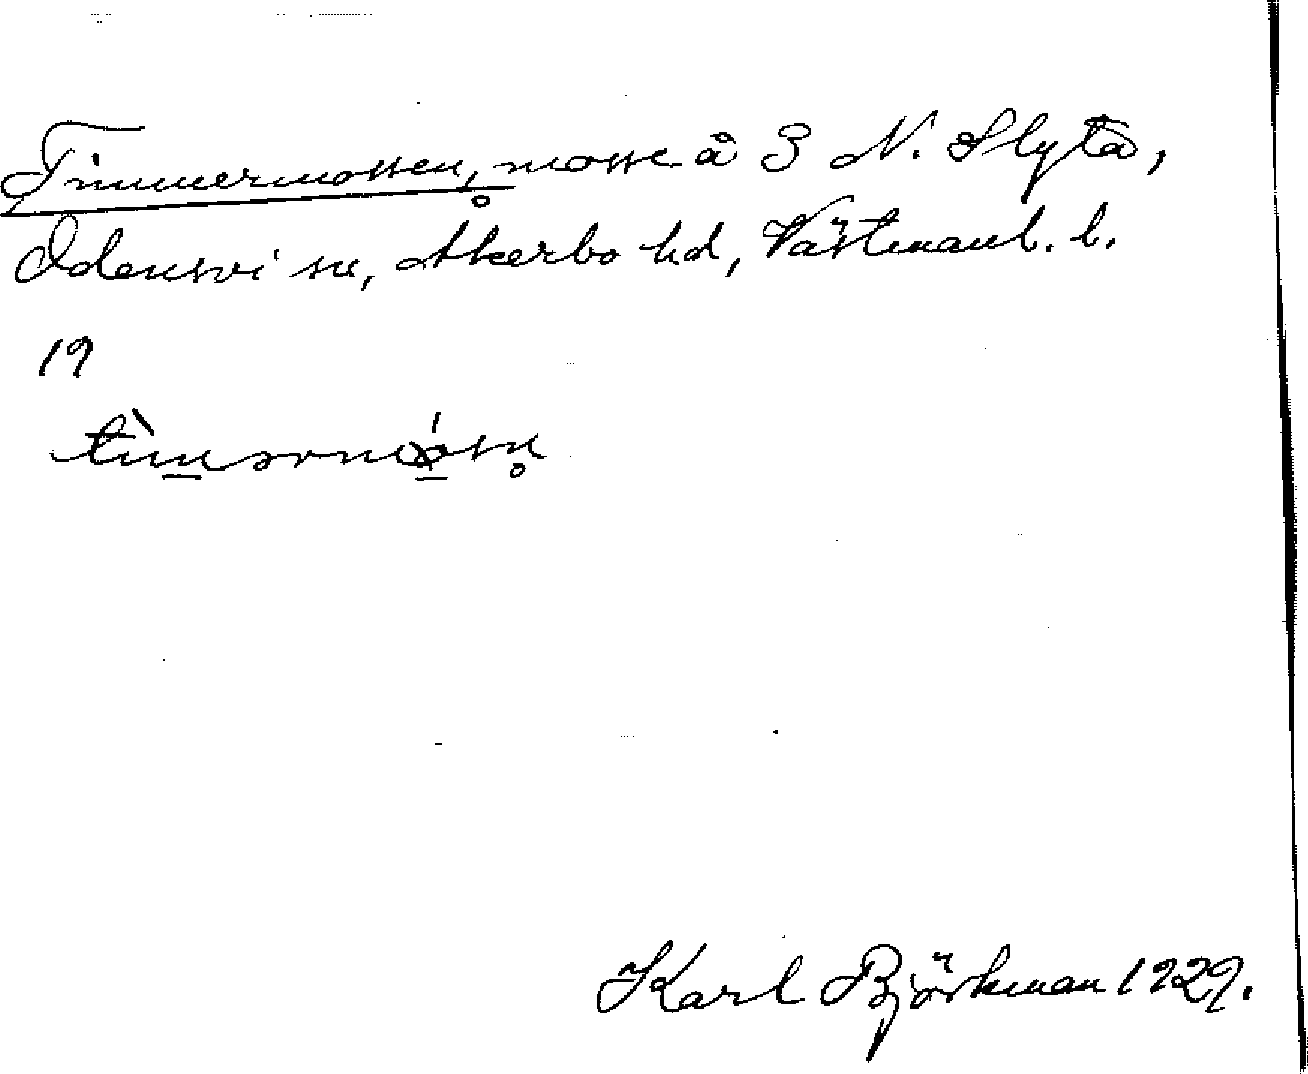 Timmermossen, mosse å 3 N. Flyta,
Odensvi sn, Åkerbo hd, Västmanl. l.
19
Karl Björkman 1929.